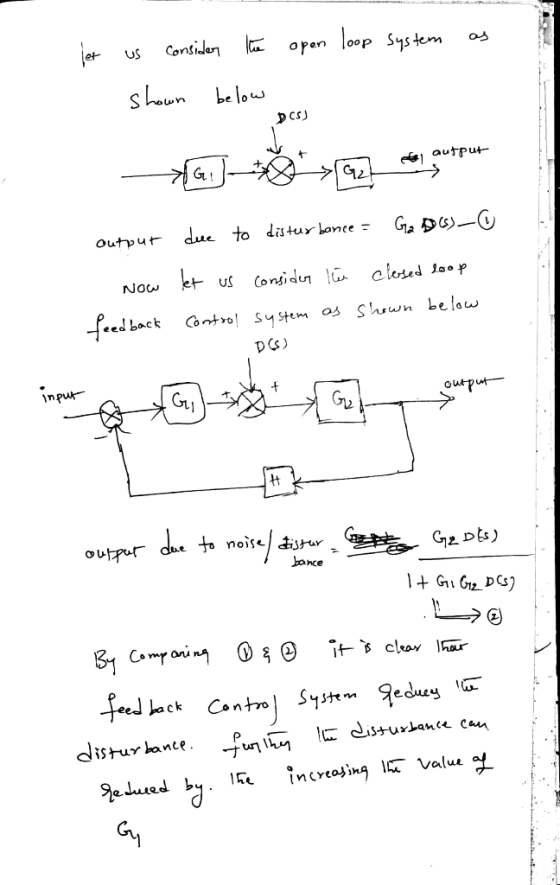 let us consider the open loop system as
shown below
D(s)
+ +
G1 G2 output
output due to disturbance = G2 D(s) — ①
Now let us consider the closed loop
feedback control system as shown below
D(s)
input + + output
G1 G2
−
H
output due to noise/distur bance = G2 D(s)
1 + G1 G2 D(s)
→ ②
By Comparing ① & ② it is clear that
feedback Control System reduces the
disturbance. further the disturbance can
reduced by. the increasing the value of
G1